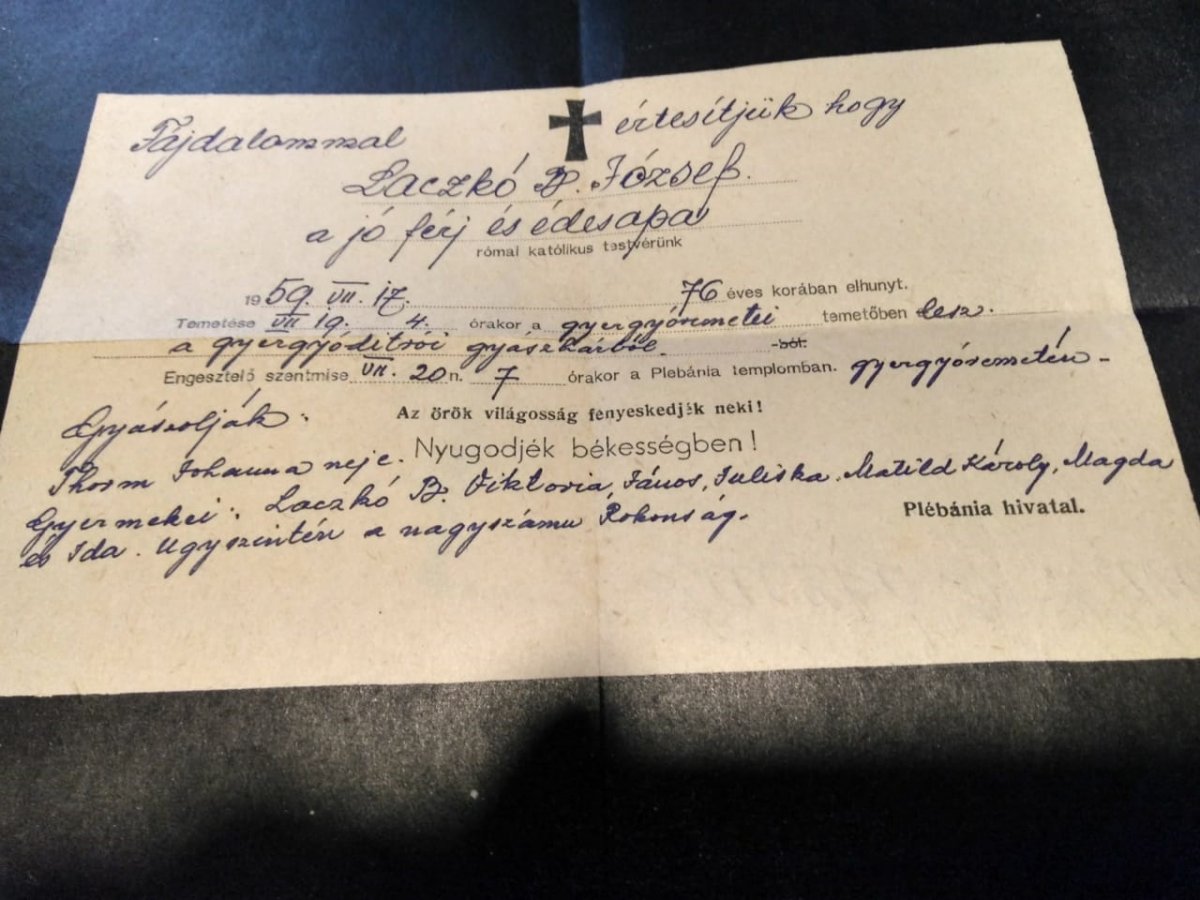 Fájdalommal értesítjük hogy
Laczkó B. József.
a jó férj és édesapa
római katólikus testvérünk
1959. VII. 17. 76 éves korában elhunyt.
Temetése VII 19. 4. órakor a gyergyóremetei temetőben lesz.
a gyergyóditrói gyászházból. -ból.
Engesztelő szentmise VII. 20 n. 7 órakor a Plebánia templomban. gyergyóremetén-
Az örök világosság fényeskedjék neki!
Gyászolják:
Nyugodjék békességben!
Thorm Johanna neje.
Gyermekei: Laczkó B. Viktoria, János, Juliska, Matild Károly, Magda
és Ida. Ugyszintén a nagyszámu Rokonság.
Plébánia hivatal.